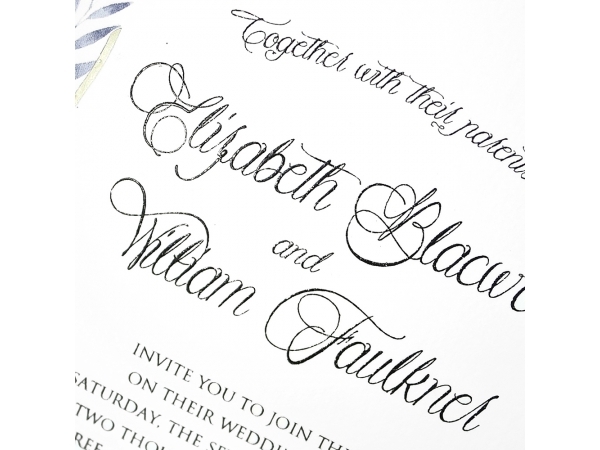 Together with their parents
Elizabeth Blacw
and
William Faulkner
INVITE YOU TO JOIN TH
ON THEIR WEDDIN
SATURDAY, THE SE
TWO THOU
REE